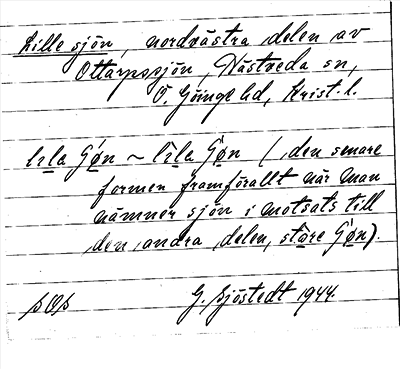 Lille sjön, nordvästra delen av
Ottarpssjön, Hästveda sn,
Ö. Göinge hd, Krist. l.
lila Gǿn ~ līla Gǿn (den senare
formen framförallt när man
nämner sjön i motsats till
den andra delen, stāre Gǿn).
G. Sjöstedt 1944.